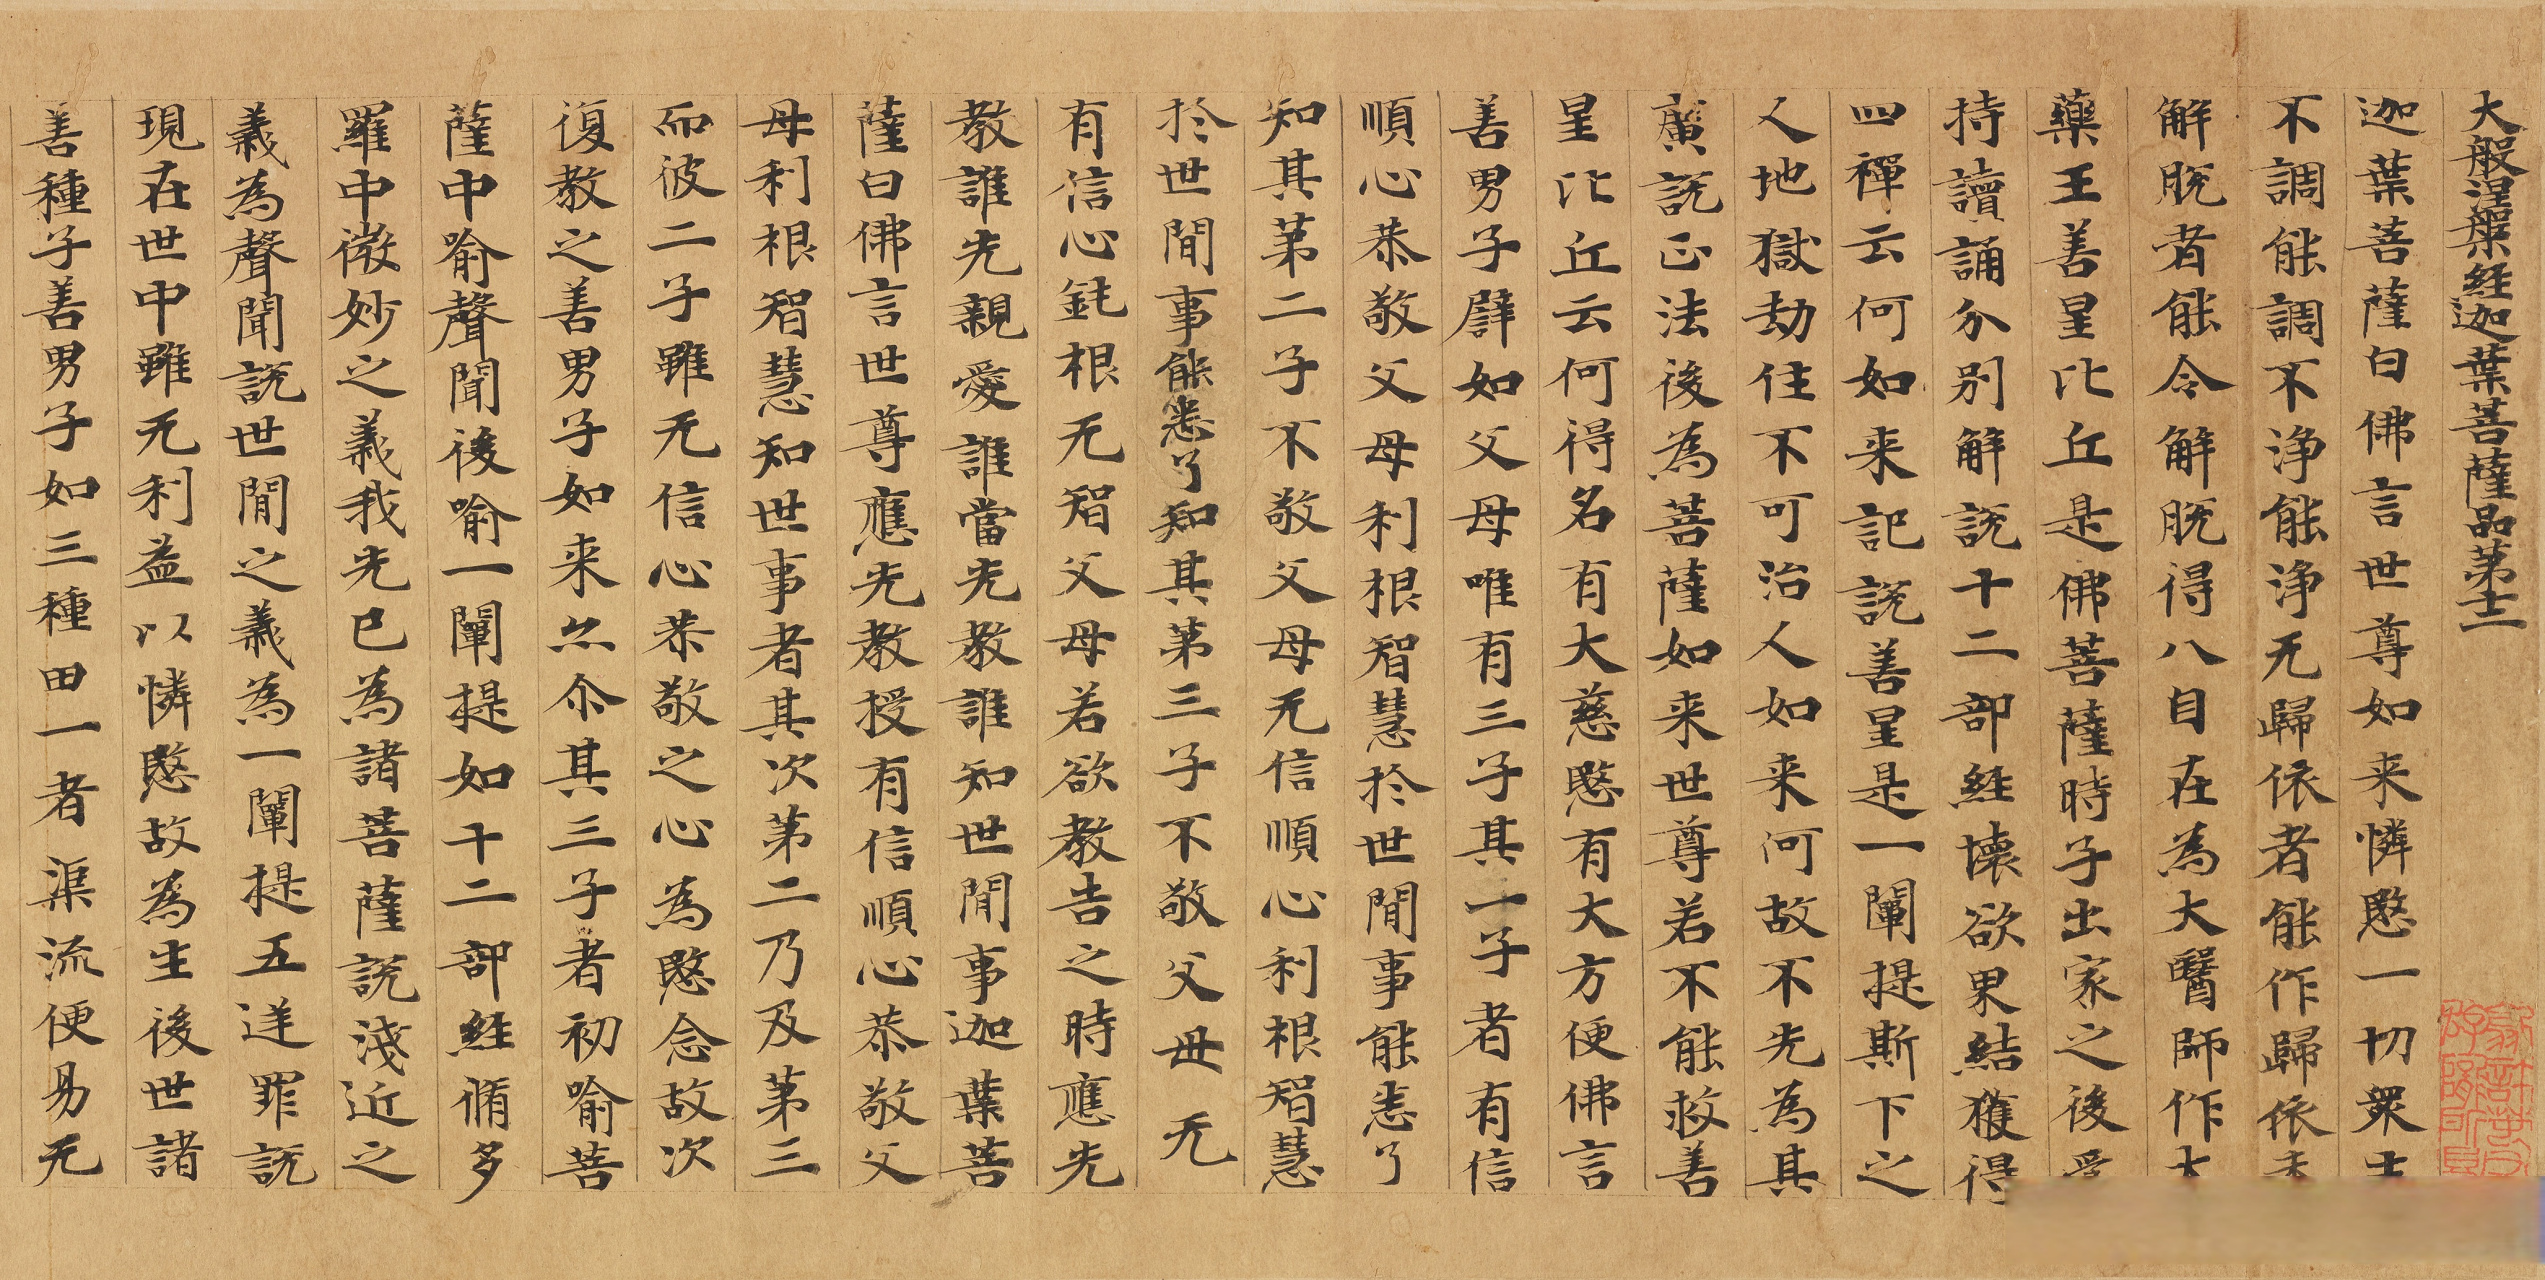 大般涅槃經迦葉菩薩品第十二
迦葉菩薩白佛言世尊如来憐愍一切衆生
不調能調不浄能浄无歸依者能作歸依未
解脱者能令解脱得八自在為大醫師作大
藥王善星比丘是佛菩薩時子出家之後受
持讀誦分別解說十二部經壞欲界結獲得
四禪云何如来記說善星是一闡提斯下之
人地獄劫住不可治人如来何故不先為其
廣說正法後為菩薩如来世尊若不能救善
星比丘云何得名有大慈愍有大方便佛言
善男子譬如父母唯有三子其一子者有信
順心恭敬父母利根智慧於世間事能悉了
知其第二子不敬父母无信順心利根智慧
於世間事能悉了知其第三子不敬父母无
有信心鈍根无智父母若欲教告之時應先
教誰先親愛誰當先教誰知世間事迦葉菩
薩白佛言世尊應先教授有信順心恭敬父
母利根智慧知世事者其次第二乃及第三
而彼二子雖无信心恭敬之心為愍念故次
復教之善男子如来亦尒其三子者初喻菩
薩中喻聲聞後喻一闡提如十二部經脩多
羅中微妙之義我先已為諸菩薩說淺近之
義為聲聞說世間之義為一闡提五逆罪說
現在世中雖无利益以憐愍故為生後世諸
善種子善男子如三種田一者渠流便易无